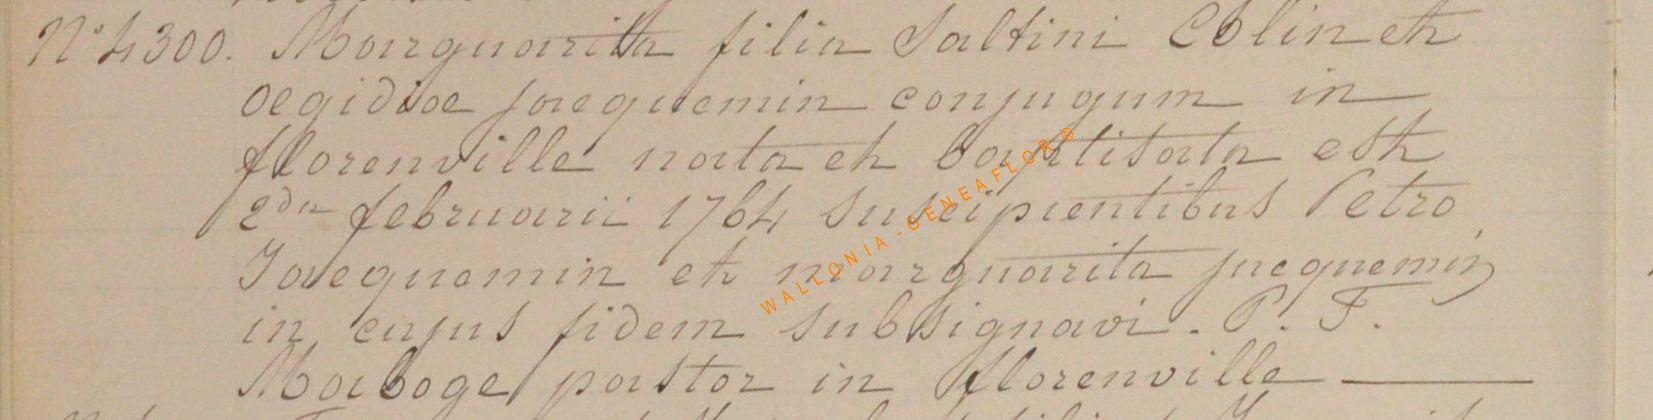 N° 4300. Marguarita filia Saltini Colin et
oegidioe jacquemin conjugum in
florenville nata et baptisata est
2da februarii 1764 suscipientibus Petro
Jacquemin et marguarita jacquemin
in cujus fidem subsignavi. P. F.
Maboge pastor in florenville
WALLONIA-GENEAFLOR®